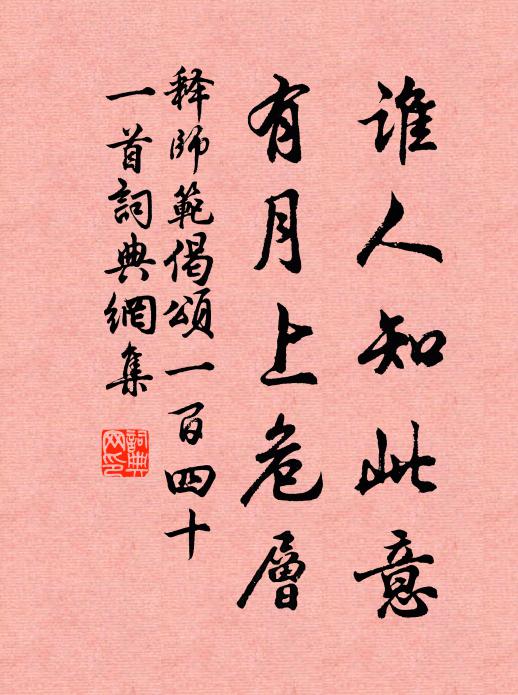 谁人知此意
有月上危層
释師範偈頌一百四十
一首詞典網集
詞典網印